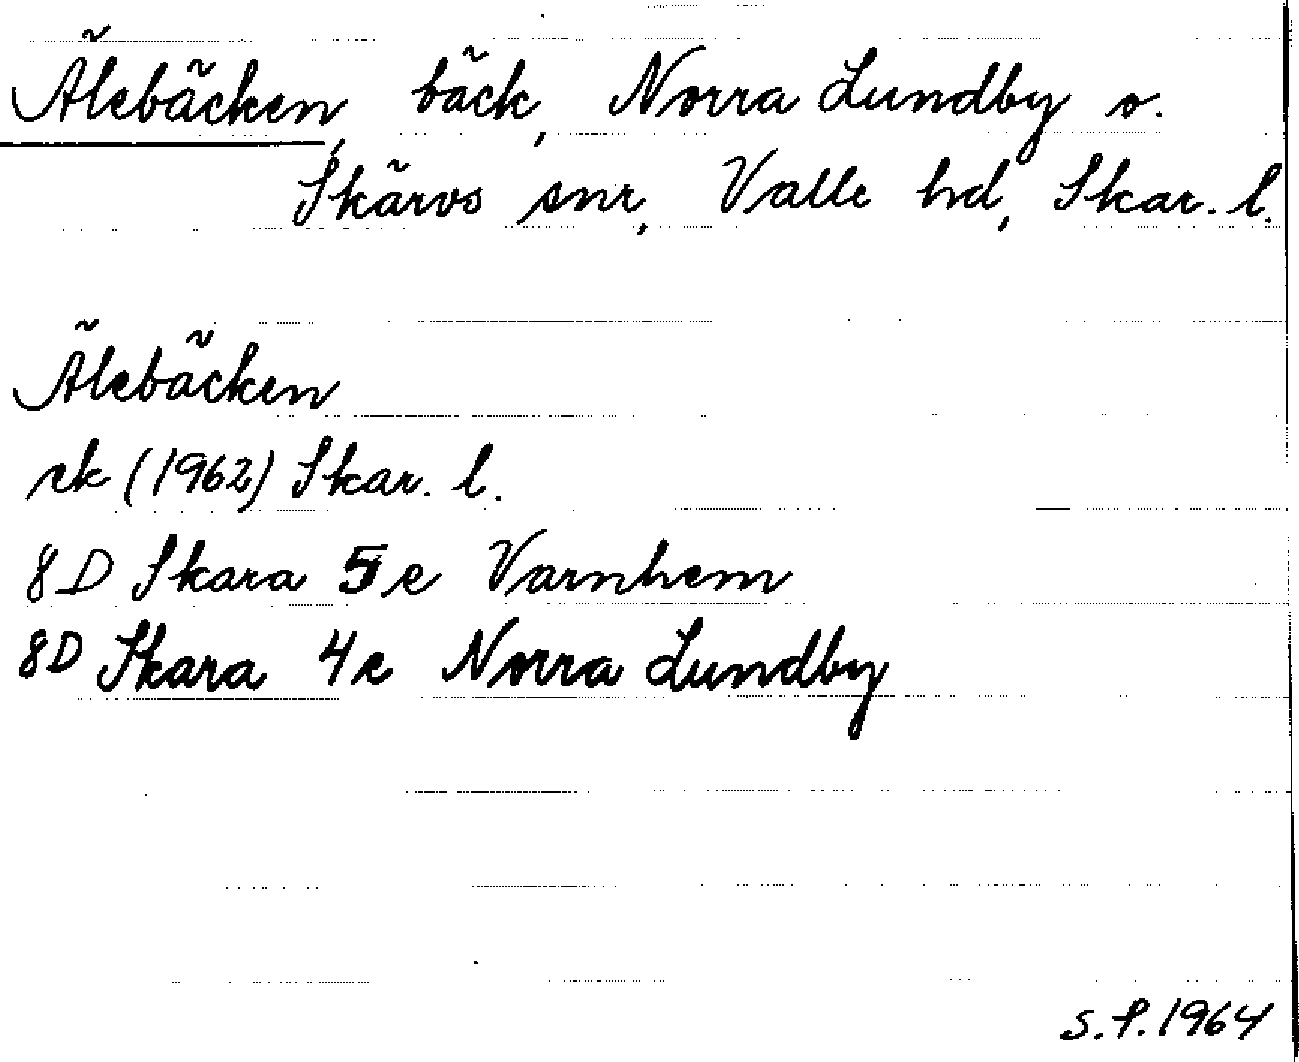 Älebäcken, bäck, Norra Lundby o.
Skärvs snr, Valle hd, Skar. l.
Älebäcken
ek (1962) Skar. l.
8D Skara 5e Varnhem
8D Skara 4e Norra Lundby
S.P. 1964